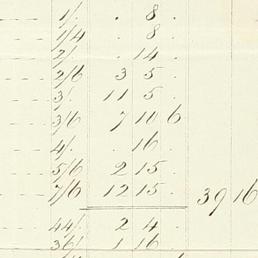 1/. . 8 .
1/4 . 8 .
2/. . 14 .
2/6 3 5 .
3/. 11 5 .
3/6 7 10 6
4/. . 16 .
5/6 2 15 .
7/6 12 15 . 39 16
44/. 2 4 .
36/. 1 16 .